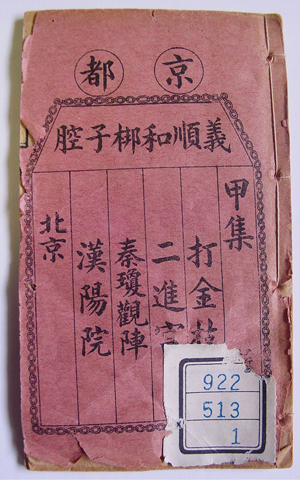 京都
義順和梆子腔
甲集
打金枝
二進宮
秦瓊觀陣
漢陽院
北京
922
513
1